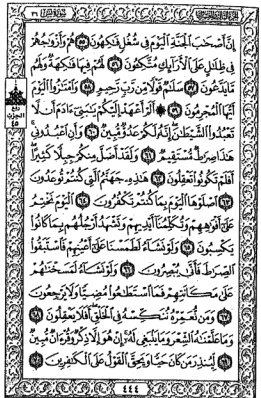 إِنَّ أَصْحَٰبَ ٱلْجَنَّةِ ٱلْيَوْمَ فِى شُغُلٍ فَٰكِهُونَ ٥٥ هُمْ وَأَزْوَٰجُهُمْ
فِى ظِلَٰلٍ عَلَى ٱلْأَرَآئِكِ مُتَّكِـُٔونَ ٥٦ لَهُمْ فِيهَا فَٰكِهَةٌ وَلَهُم
مَّا يَدَّعُونَ ٥٧ سَلَٰمٌ قَوْلًا مِّن رَّبٍّ رَّحِيمٍ ٥٨ وَٱمْتَٰزُوا۟ ٱلْيَوْمَ
أَيُّهَا ٱلْمُجْرِمُونَ ٥٩ أَلَمْ أَعْهَدْ إِلَيْكُمْ يَٰبَنِىٓ ءَادَمَ أَن لَّا
تَعْبُدُوا۟ ٱلشَّيْطَٰنَ إِنَّهُۥ لَكُمْ عَدُوٌّ مُّبِينٌ ٦٠ وَأَنِ ٱعْبُدُونِى
هَٰذَا صِرَٰطٌ مُّسْتَقِيمٌ ٦١ وَلَقَدْ أَضَلَّ مِنكُمْ جِبِلًّا كَثِيرًا
أَفَلَمْ تَكُونُوا۟ تَعْقِلُونَ ٦٢ هَٰذِهِۦ جَهَنَّمُ ٱلَّتِى كُنتُمْ تُوعَدُونَ
٦٣ ٱصْلَوْهَا ٱلْيَوْمَ بِمَا كُنتُمْ تَكْفُرُونَ ٦٤ ٱلْيَوْمَ نَخْتِمُ
عَلَىٰٓ أَفْوَٰهِهِمْ وَتُكَلِّمُنَآ أَيْدِيهِمْ وَتَشْهَدُ أَرْجُلُهُم بِمَا كَانُوا۟
يَكْسِبُونَ ٦٥ وَلَوْ نَشَآءُ لَطَمَسْنَا عَلَىٰٓ أَعْيُنِهِمْ فَٱسْتَبَقُوا۟
ٱلصِّرَٰطَ فَأَنَّىٰ يُبْصِرُونَ ٦٦ وَلَوْ نَشَآءُ لَمَسَخْنَٰهُمْ
عَلَىٰ مَكَانَتِهِمْ فَمَا ٱسْتَطَٰعُوا۟ مُضِيًّا وَلَا يَرْجِعُونَ
٦٧ وَمَن نُّعَمِّرْهُ نُنَكِّسْهُ فِى ٱلْخَلْقِ أَفَلَا يَعْقِلُونَ ٦٨
وَمَا عَلَّمْنَٰهُ ٱلشِّعْرَ وَمَا يَنۢبَغِى لَهُۥٓ إِنْ هُوَ إِلَّا ذِكْرٌ وَقُرْءَانٌ مُّبِينٌ
٦٩ لِّيُنذِرَ مَن كَانَ حَيًّا وَيَحِقَّ ٱلْقَوْلُ عَلَى ٱلْكَٰفِرِينَ ٧٠
ربع
الحزب
٤٥
٤٤٤